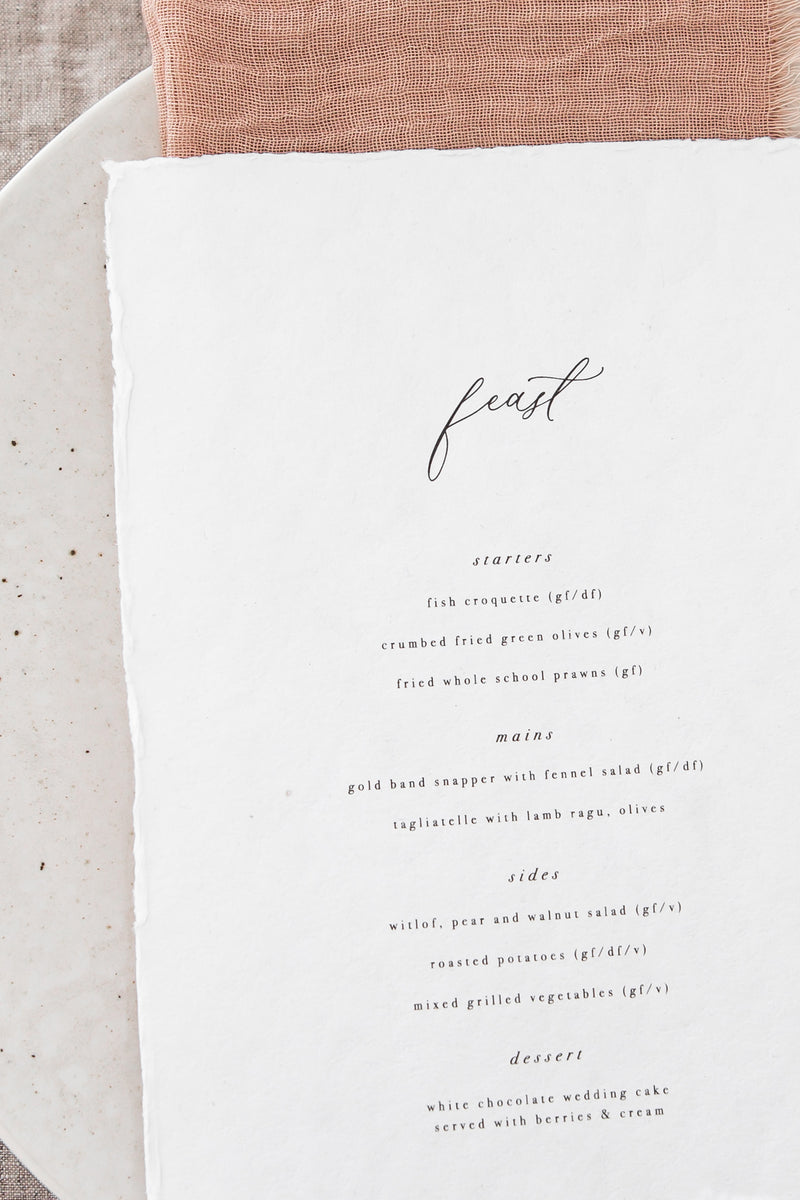 feast
starters
fish croquette (gf/df)
crumbed fried green olives (gf/v)
fried whole school prawns (gf)
mains
gold band snapper with fennel salad (gf/df)
tagliatelle with lamb ragu, olives
sides
witlof, pear and walnut salad (gf/v)
roasted potatoes (gf/df/v)
mixed grilled vegetables (gf/v)
dessert
white chocolate wedding cake
served with berries & cream